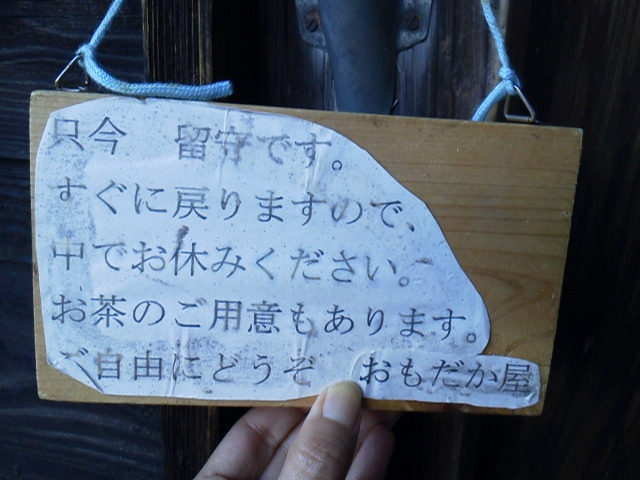 只今　留守です。
すぐに戻りますので、
中でお休みください。
お茶のご用意もあります。
ご自由にどうぞ　おもだか屋